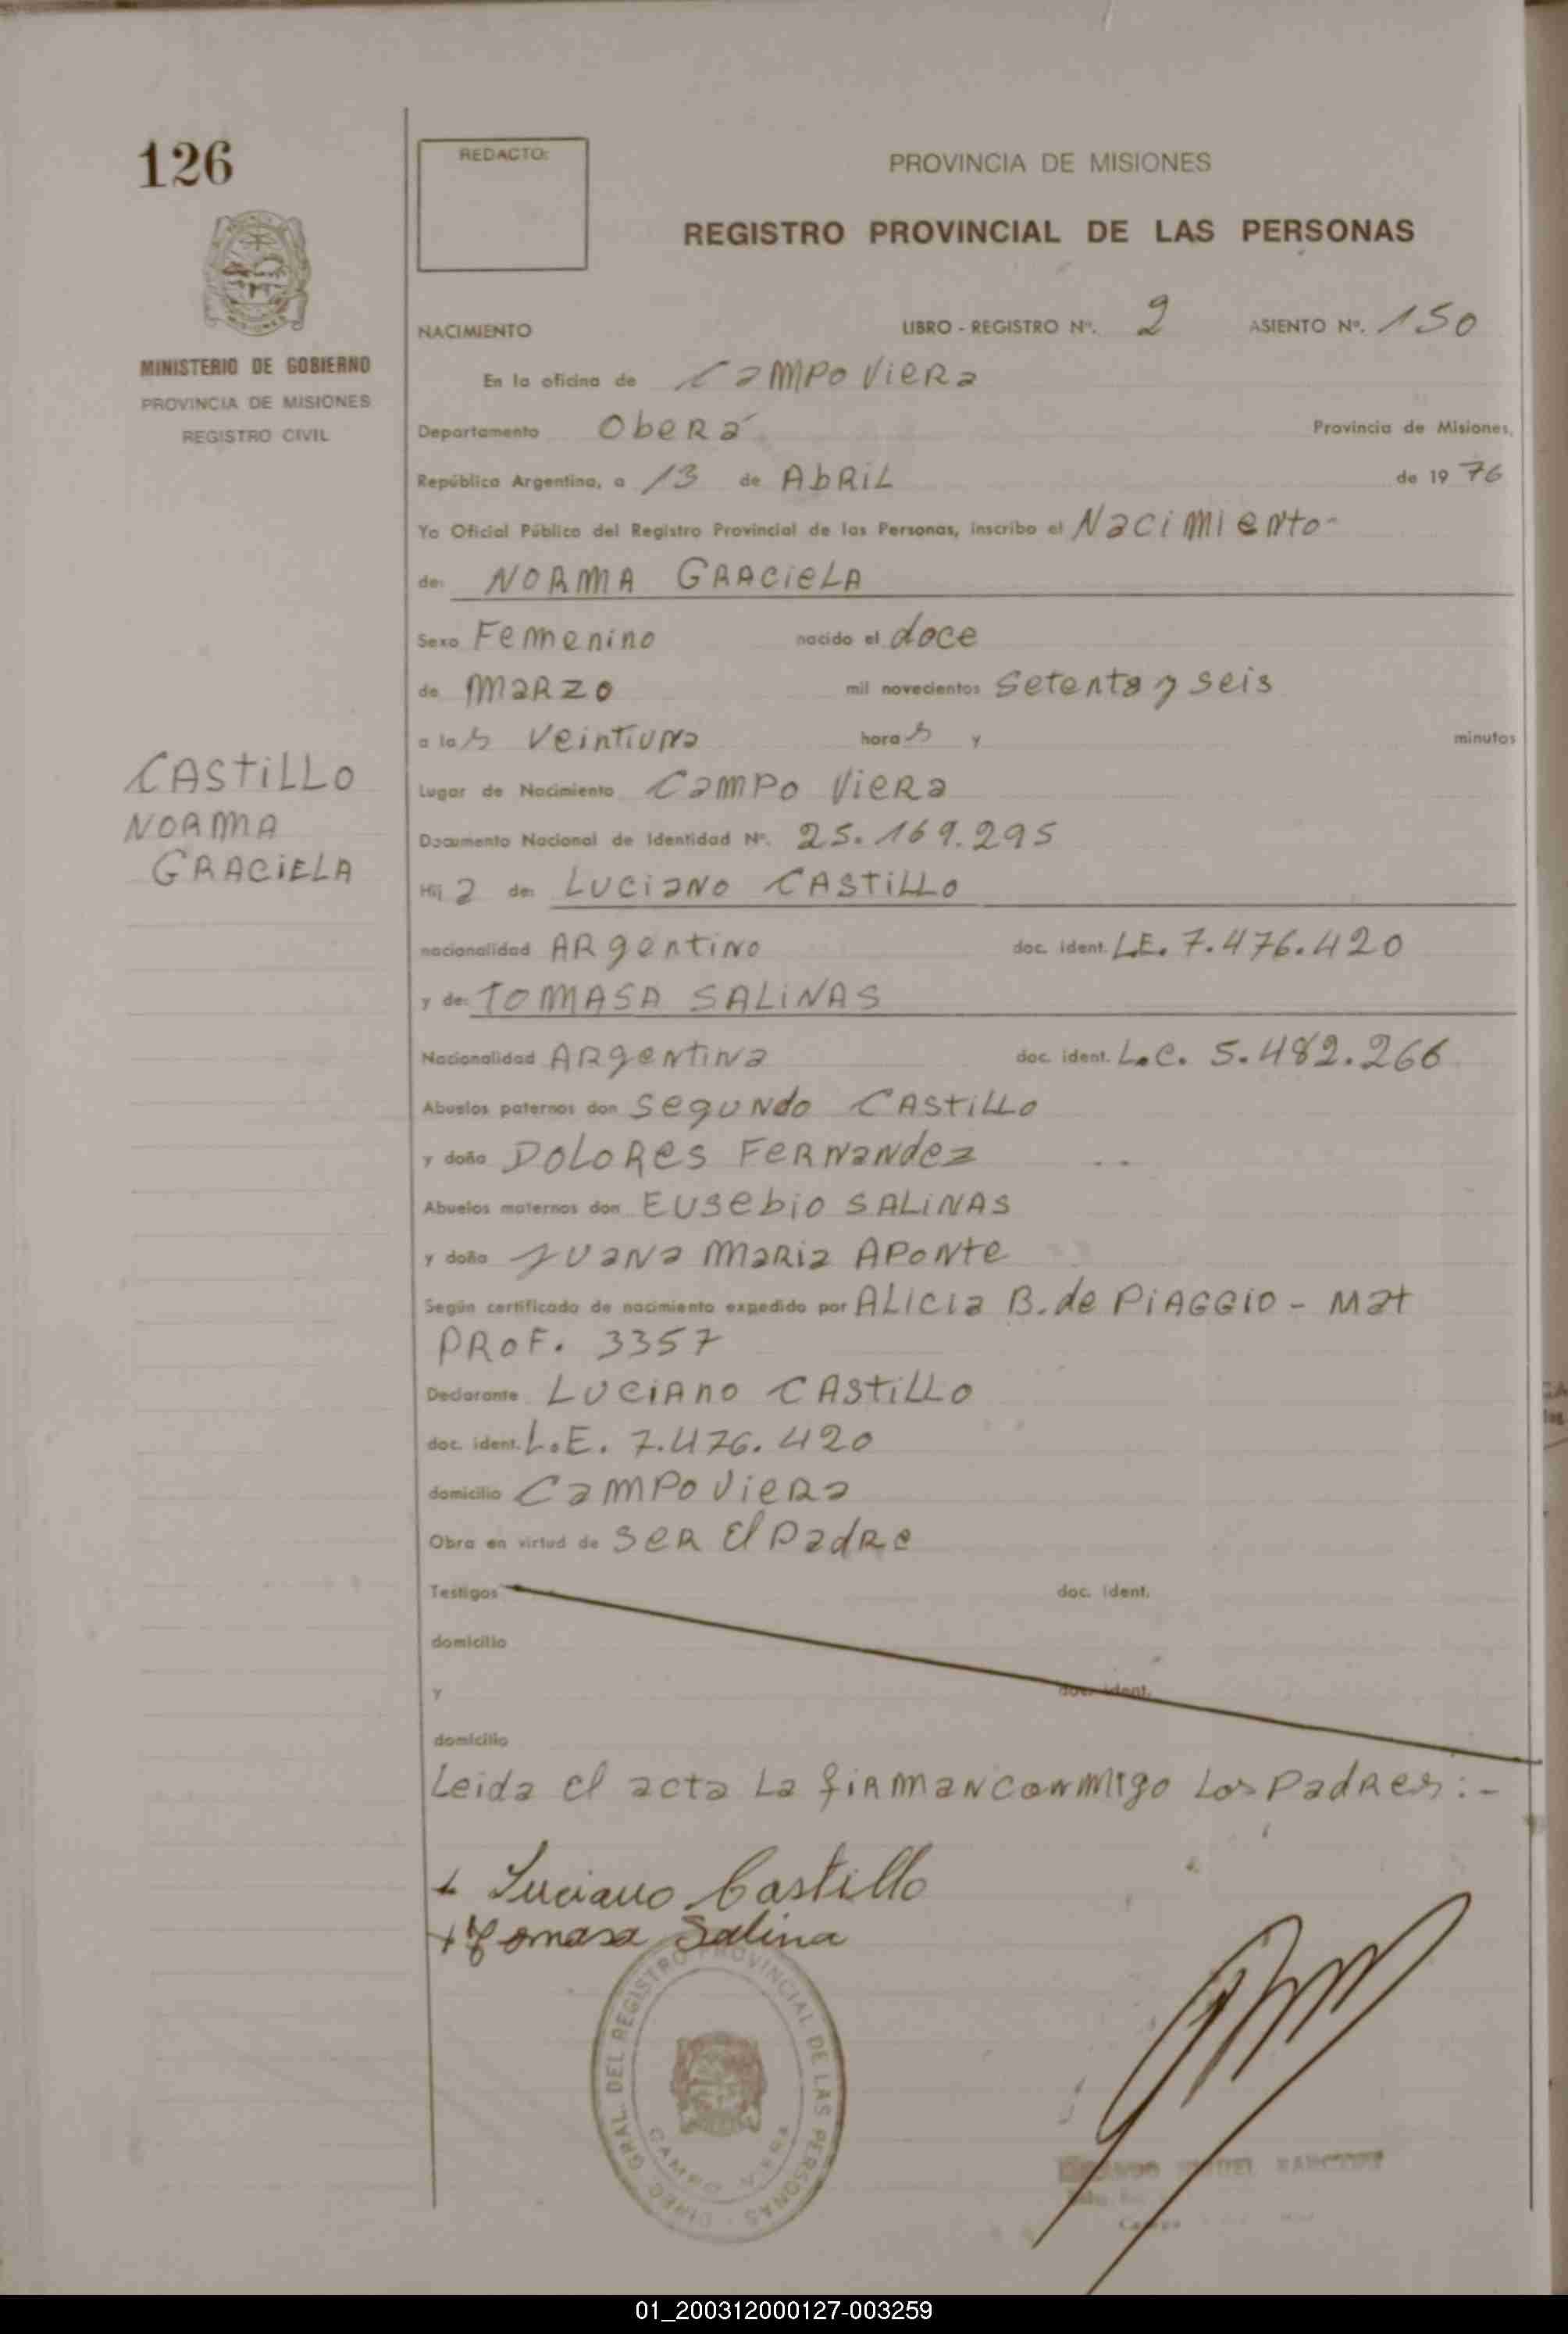 126
REDACTO:
PROVINCIA DE MISIONES
REGISTRO PROVINCIAL DE LAS PERSONAS
MINISTERIO DE GOBIERNO
PROVINCIA DE MISIONES
REGISTRO CIVIL
NACIMIENTO LIBRO - REGISTRO Nº. 2 ASIENTO Nº. 150
En la oficina de Campo Viera
Departamento Oberá Provincia de Misiones,
República Argentina, a 13 de Abril de 1976
Yo Oficial Público del Registro Provincial de las Personas, inscribo el Nacimiento-
de: NORMA GRACIELA
Sexo Femenino nacido el doce
de Marzo mil novecientos Setenta y seis
a las veintiuna horas y minutos
CASTILLO
NORMA
GRACIELA
Lugar de Nacimiento Campo Viera
Documento Nacional de Identidad Nº. 25.169.295
Hija de: LUCIANO CASTILLO
nacionalidad Argentino doc. ident. L.E. 7.476.420
y de: TOMASA SALINAS
Nacionalidad Argentina doc. ident. L.C. 5.482.266
Abuelos paternos don Segundo CASTILLO
y doña DOLORES Fernandez
Abuelos maternos don Eusebio SALINAS
y doña Juana Maria Aponte
Según certificado de nacimiento expedido por Alicia B. de PIAGGIO - Mat
PROF. 3357
Declarante LUCIANO CASTILLO
doc. ident. L.E. 7.476.420
domicilio Campo Viera
Obra en virtud de Ser el Padre
Testigos doc. ident.
domicilio
y doc. ident.
domicilio
Leida el acta La firman conmigo Los Padres:-
Luciano Castillo
Tomasa Salina
DIREC. GRAL. DEL REGISTRO PROVINCIAL DE LAS PERSONAS
CAMPO VIERA
01_200312000127-003259